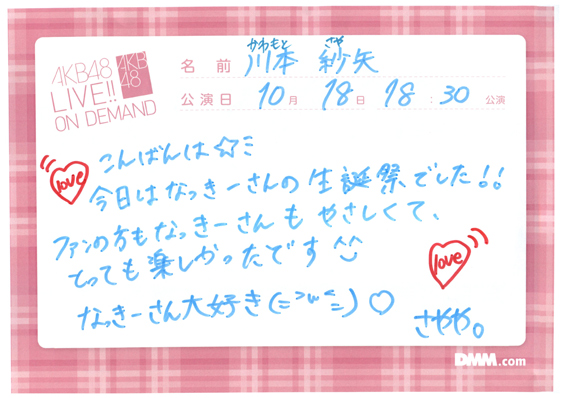 AKB48
LIVE!!
ON DEMAND
AKB
48
かわもと さや
名前 川本 紗矢
公演日 10月 18日 18:30 公演
こんばんは☆ミ
love
今日はなっきーさんの生誕祭でした!!
ファンの方もなっきーさんもやさしくて、
とっても楽しかったです
love
なっきーさん大好き(=>ω<=)♡
さやや。
DMM.com